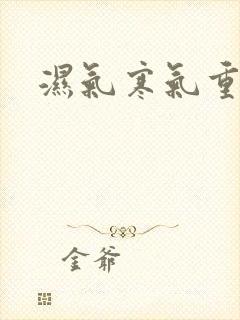 濕氣寒氣重
金爺